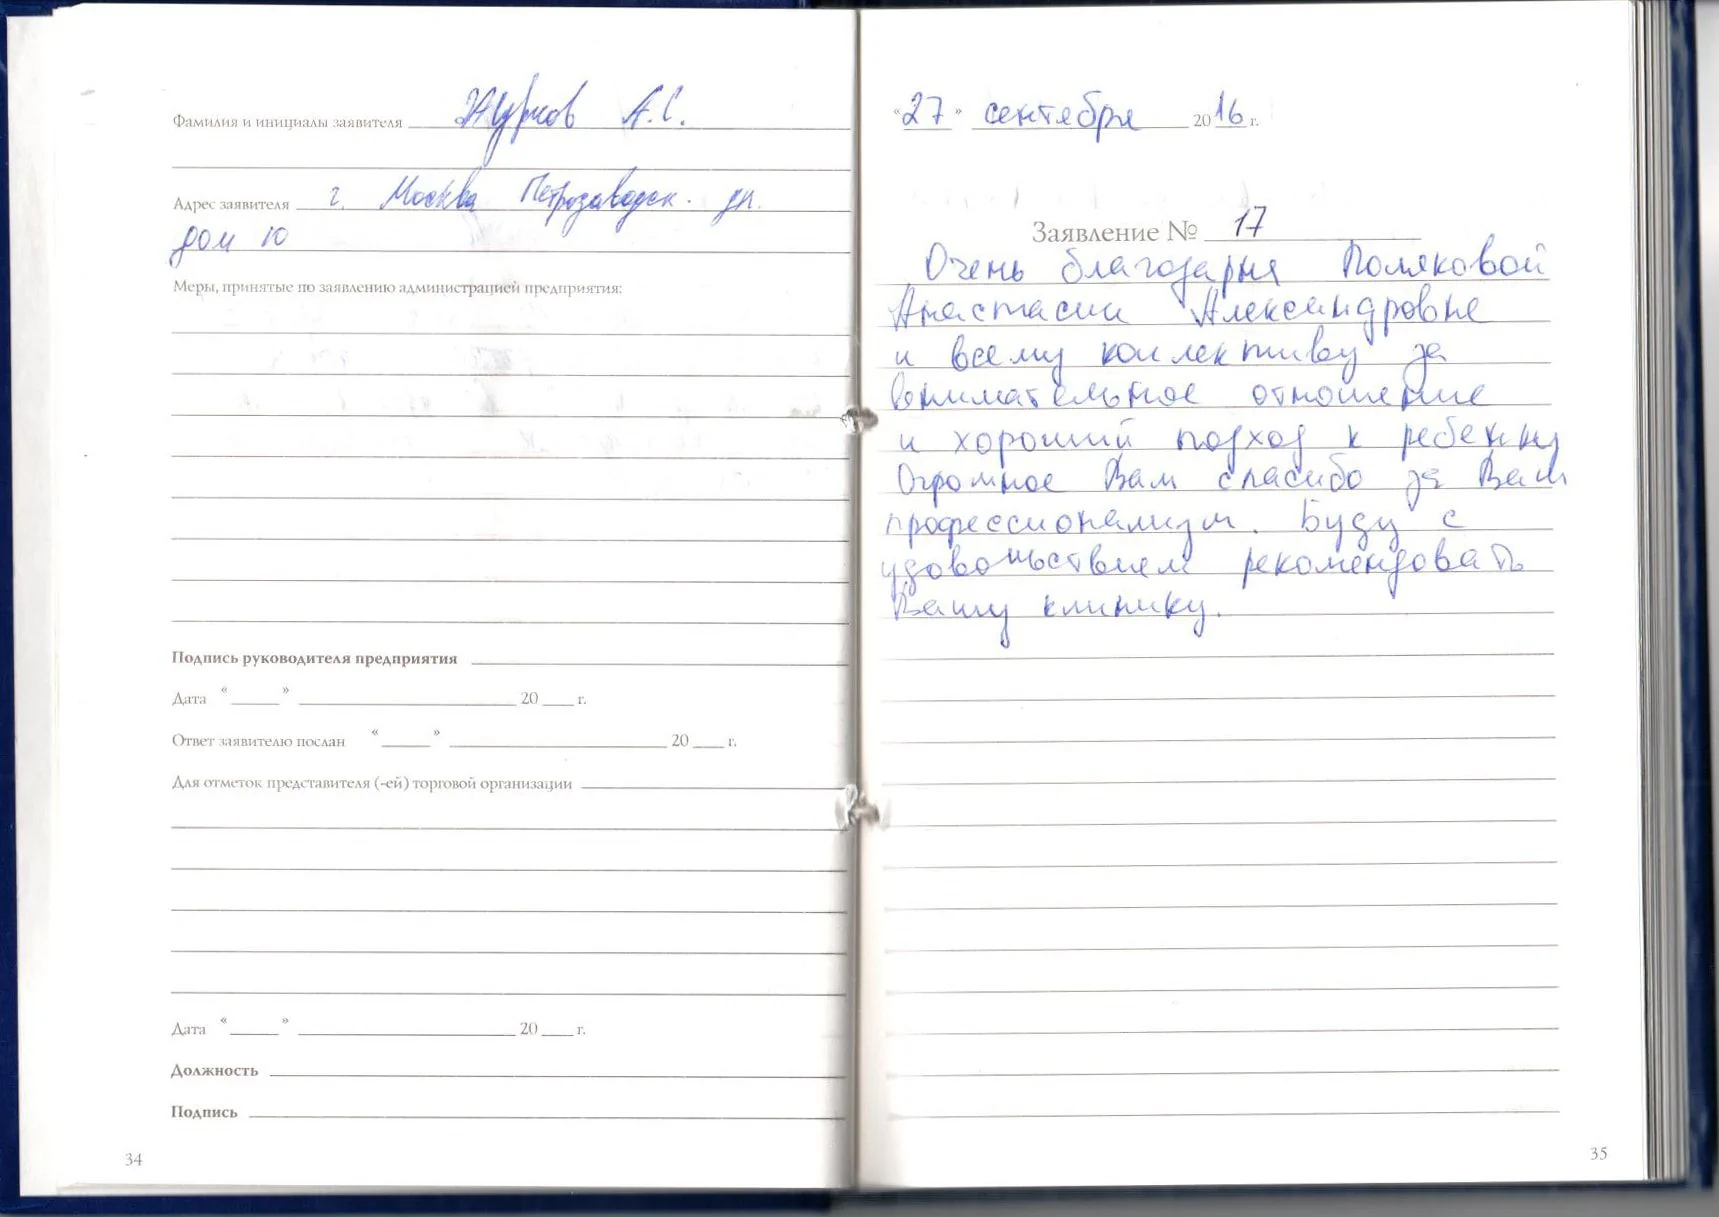 Фамилия и инициалы заявителя Журков А.С.
Адрес заявителя г. Москва Петрозаводск. ул.
дом 10
Меры, принятые по заявлению администрацией предприятия:
Подпись руководителя предприятия
Дата “ ” 20 г.
Ответ заявителю послан “ ” 20 г.
Для отметок представителя (-ей) торговой организации
Дата “ ” 20 г.
Должность
Подпись
34
“27” сентября 2016 г.
Заявление № 17
Очень благодарна Поляковой
Анастасии Александровне
и всему коллективу за
внимательное отношение
и хороший подход к ребенку
Огромное Вам спасибо за Ваш
профессионализм. Буду с
удовольствием рекомендовать
Вашу клинику.
35